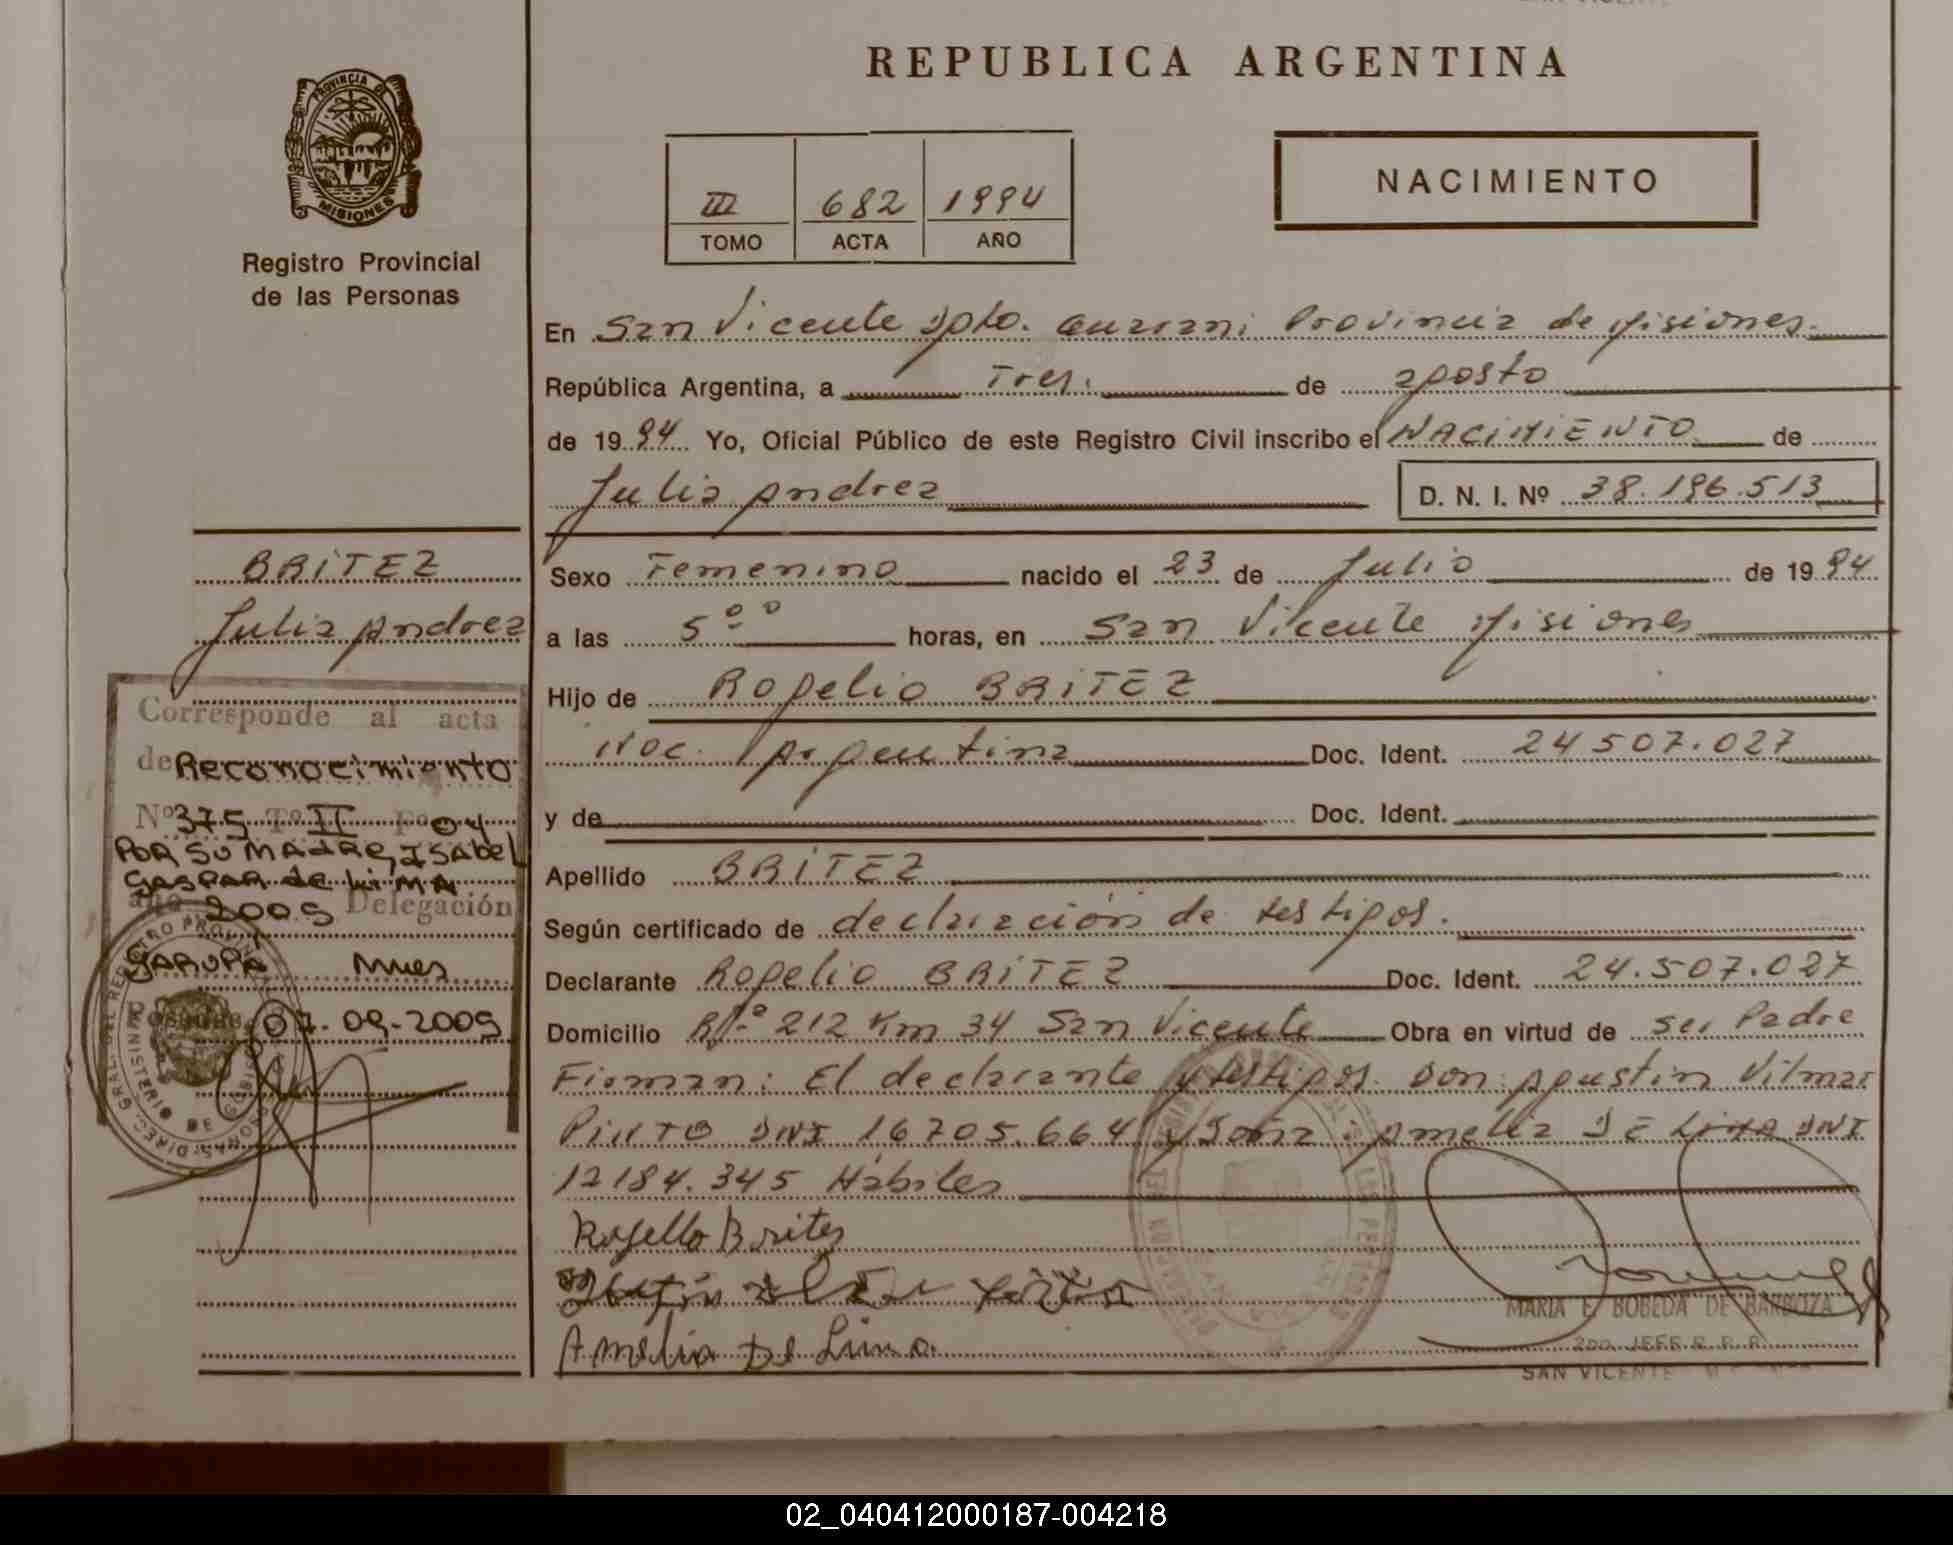 REPUBLICA ARGENTINA
PROVINCIA DE MISIONES
Registro Provincial
de las Personas
III 682 1994
TOMO ACTA AÑO
NACIMIENTO
En San Vicente Dpto. Guarani Provincia de Misiones.
República Argentina, a Tres. de agosto
de 1994 Yo, Oficial Público de este Registro Civil inscribo el NACIMIENTO de
Julia Andrea D. N. I. Nº 38.196.513
Sexo Femenino nacido el 23 de Julio de 1994
a las 5ºº horas, en San Vicente Misiones
Hijo de Rogelio BRITEZ
Nac. Argentina Doc. Ident. 24507.027
y de Doc. Ident.
Apellido BRITEZ
Según certificado de declaración de testigos.
Declarante Rogelio BRITEZ Doc. Ident. 24.507.027
Domicilio R.Nº 212 Km 34 San Vicente Obra en virtud de ser Padre
Firman: El declarante y testigos. Don: Agustin Vilmar
PINTO DNI 16705.664 y Doña Amelia DE LIMA DNI
12184.345 Hábiles
Rogello Brites
Amelia De Lima.
MARIA E. BOBEDA DE BARBOZA
2DO. JEFE R. P. P.
SAN VICENTE
BRITEZ
Julia Andrea
Corresponde al acta
de Reconocimiento
Nº 375 Tº II Fº 04
POR SU MADRE, ISABEL
GASPAR de LIMA
año 2009 Delegación
GARUPA Mnes
Posadas, 07-09-2009
02_040412000187-004218